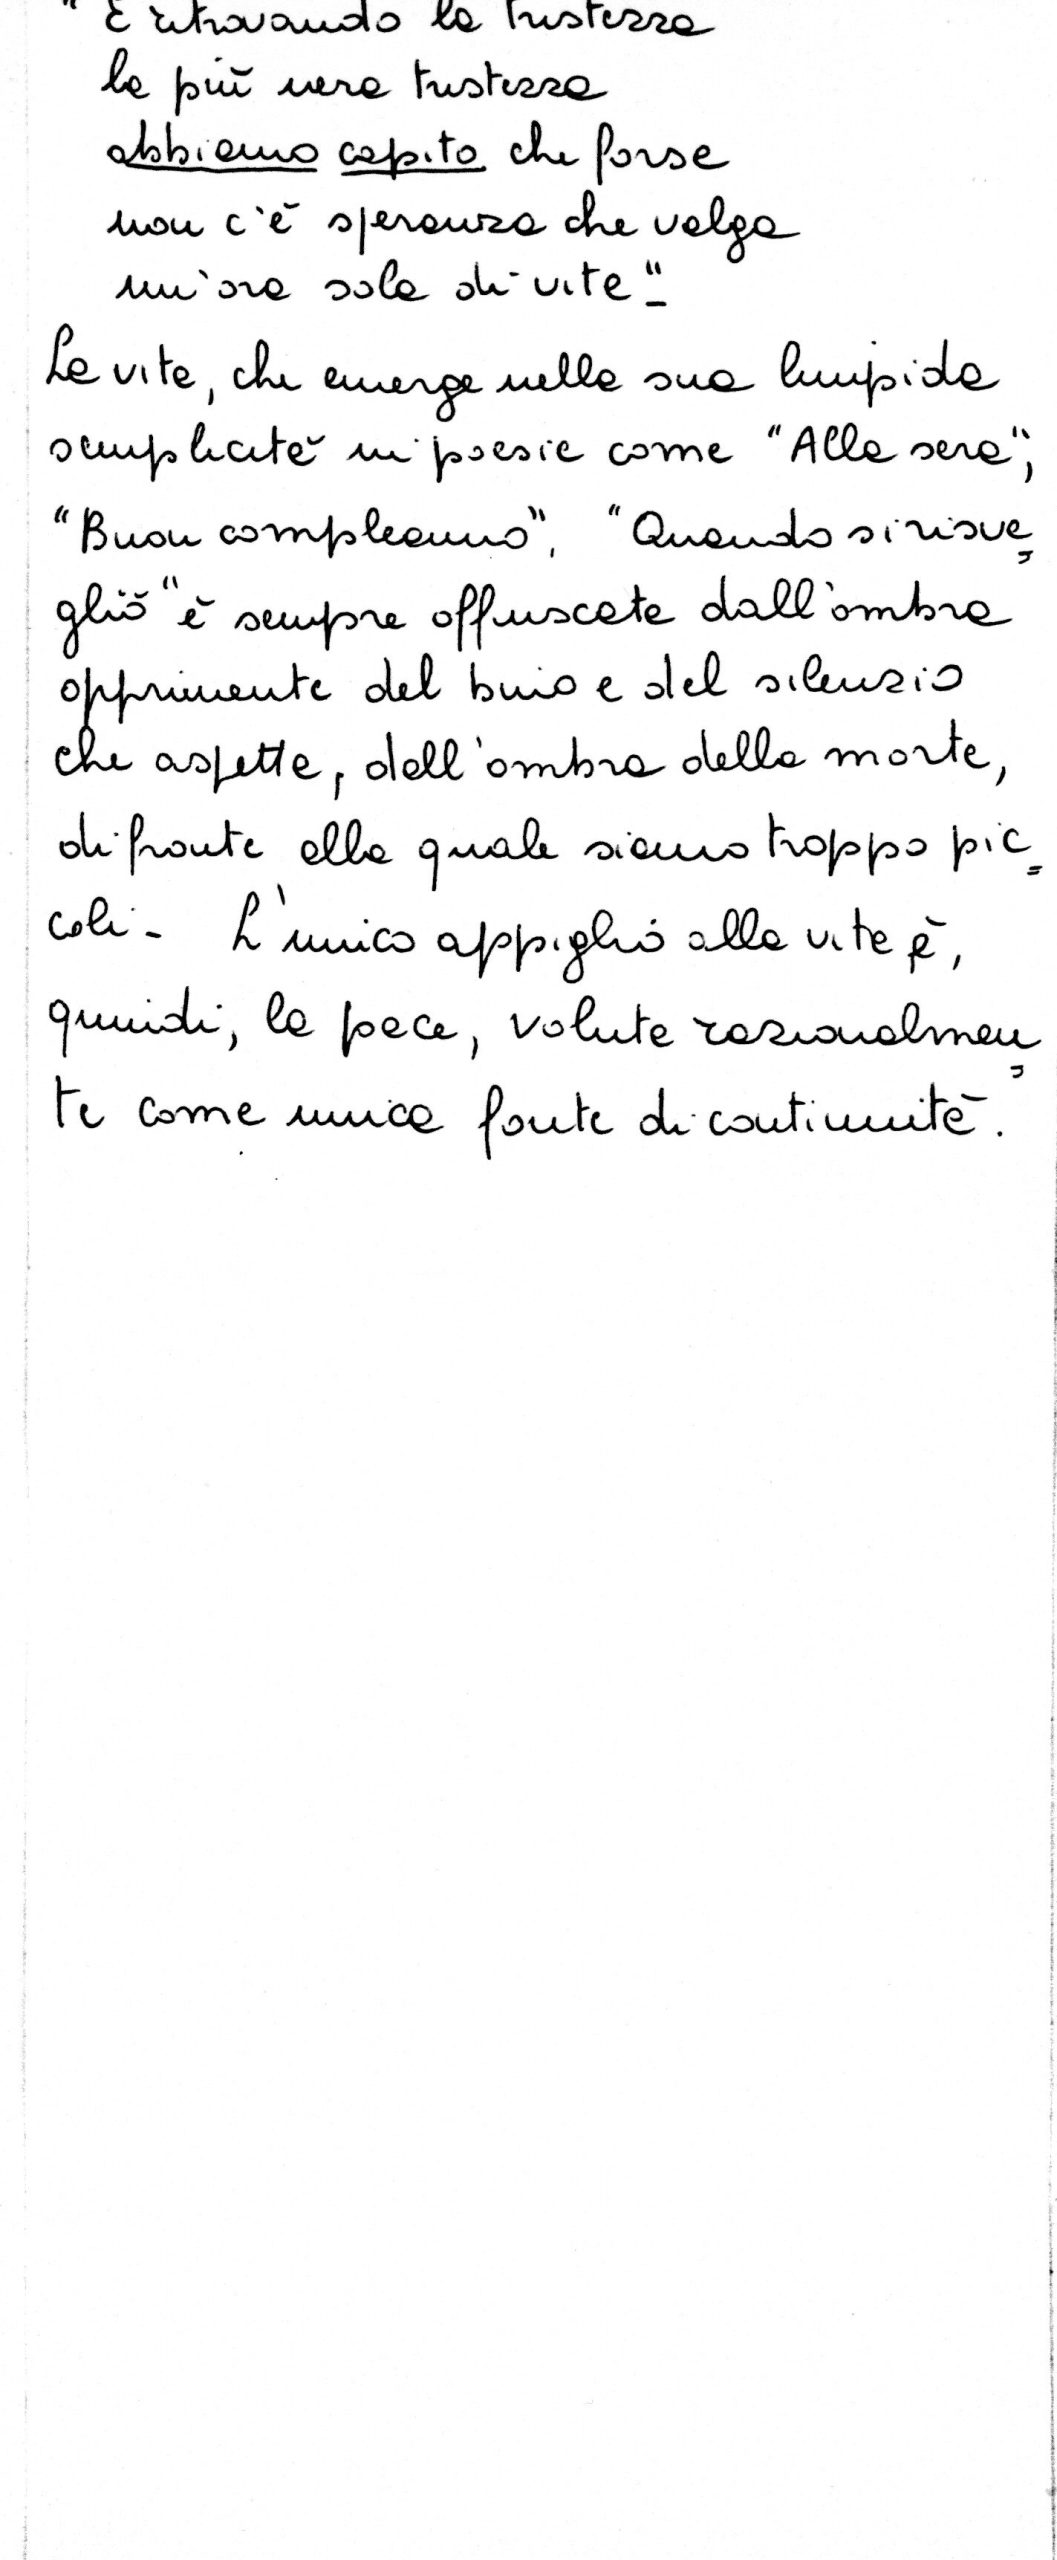 "E ritrovando la tristezza
la più vera tristezza
abbiamo capito che forse
non c'è speranza che valga
un'ora sola di vita"-
La vita, che emerge nella sua limpida
semplicità in poesie come "Alla sera",
"Buon compleanno", "Quando si risve=
gliò" è sempre offuscata dall'ombra
opprimente del buio e del silenzio
che aspetta, dall'ombra della morte,
di fronte alla quale siamo troppo pic=
coli- L'unico appiglio alla vita è,
quindi, la pace, voluta razionalmen=
te come unica fonte di continuità.